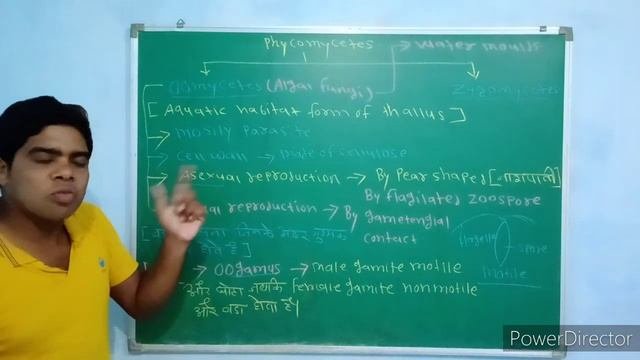 Phycomycetes → Water moulds
Oomycetes (Algae fungi) Zygomycetes
[Aquatic habitat form of thallus]
→ mostly Parasite
→ Cell wall → made of cellulose
→ Asexual reproduction → By Pear shaped [नाशपाती]
By flagilated zoospore
reproduction → By gametengial
contact
flagella spore
motile
होते है]
→ Oogamus → male gamite motile
और छोटा जबकि female gamite nonmotile
और बडा होता है।
PowerDirector